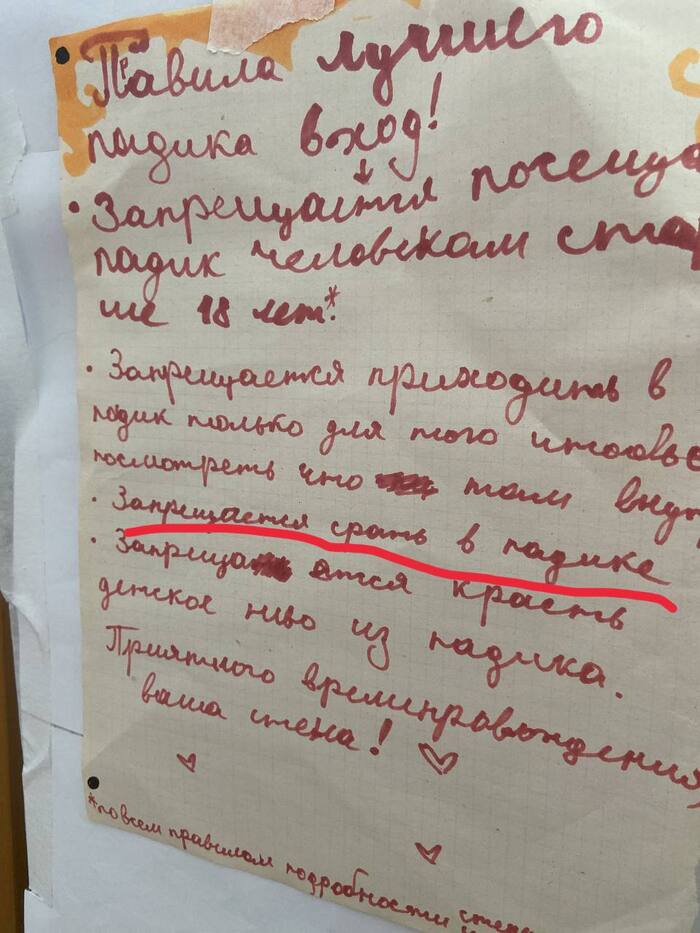 Правила лучшего
падика вход!
• Запрещается посеща
падик человекам стар
ше 18 лет*.
• Запрещается приходить в
падик только для того чтобы
посмотреть что там внут
• Запрещается срать в падике
• Запрещается красть
детское пиво из падика.
Приятного времяправождения,
ваша стена!
*по всем правилам подробности